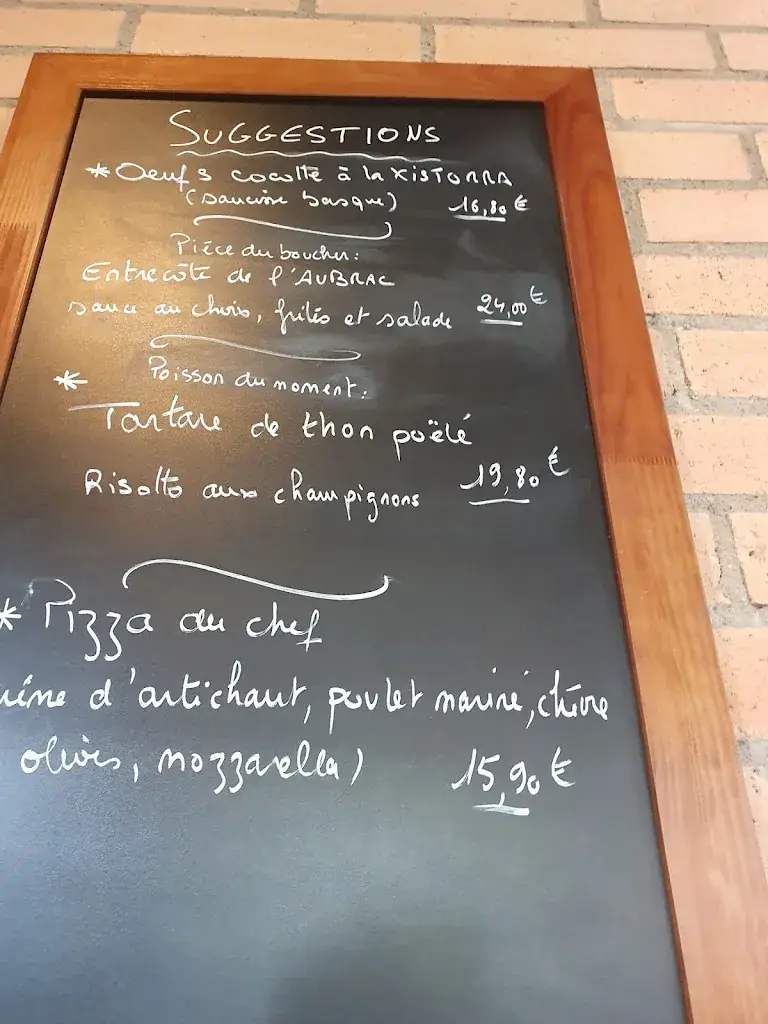 SUGGESTIONS
* Oeufs cocotte à la XISTORRA
(saucisse basque) 16,80 €
Pièce du boucher:
Entrecôte de l'AUBRAC
sauce au choix, frites et salade 24,00 €
* Poisson du moment:
Tartare de thon poëlé
Risotto aux champignons 19,80 €
* Pizza du chef
d'artichaut, poulet mariné, chèvre
olives, mozzarella) 15,90 €